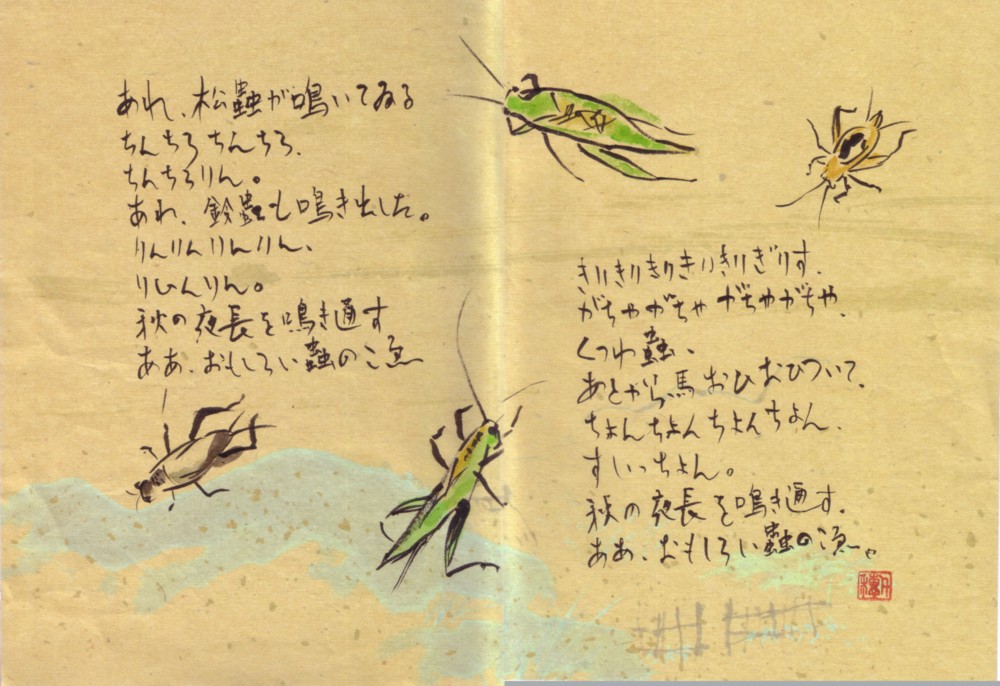 あれ、松蟲が鳴いてゐる
ちんちろちんちろ、
ちんちろりん。
あれ、鈴蟲も鳴き出した。
りんりんりんりん、
りひんりん。
秋の夜長を鳴き通す
ああ、おもしろい蟲のこゑ
きりきりきりきりきりぎりす、
がちやがちや がちやがちや、
くつわ蟲、
あとから馬おひおひついて、
ちよんちよんちよんちよん、
すいつちよん。
秋の夜長を鳴き通す、
ああ、おもしろい蟲のこゑ。